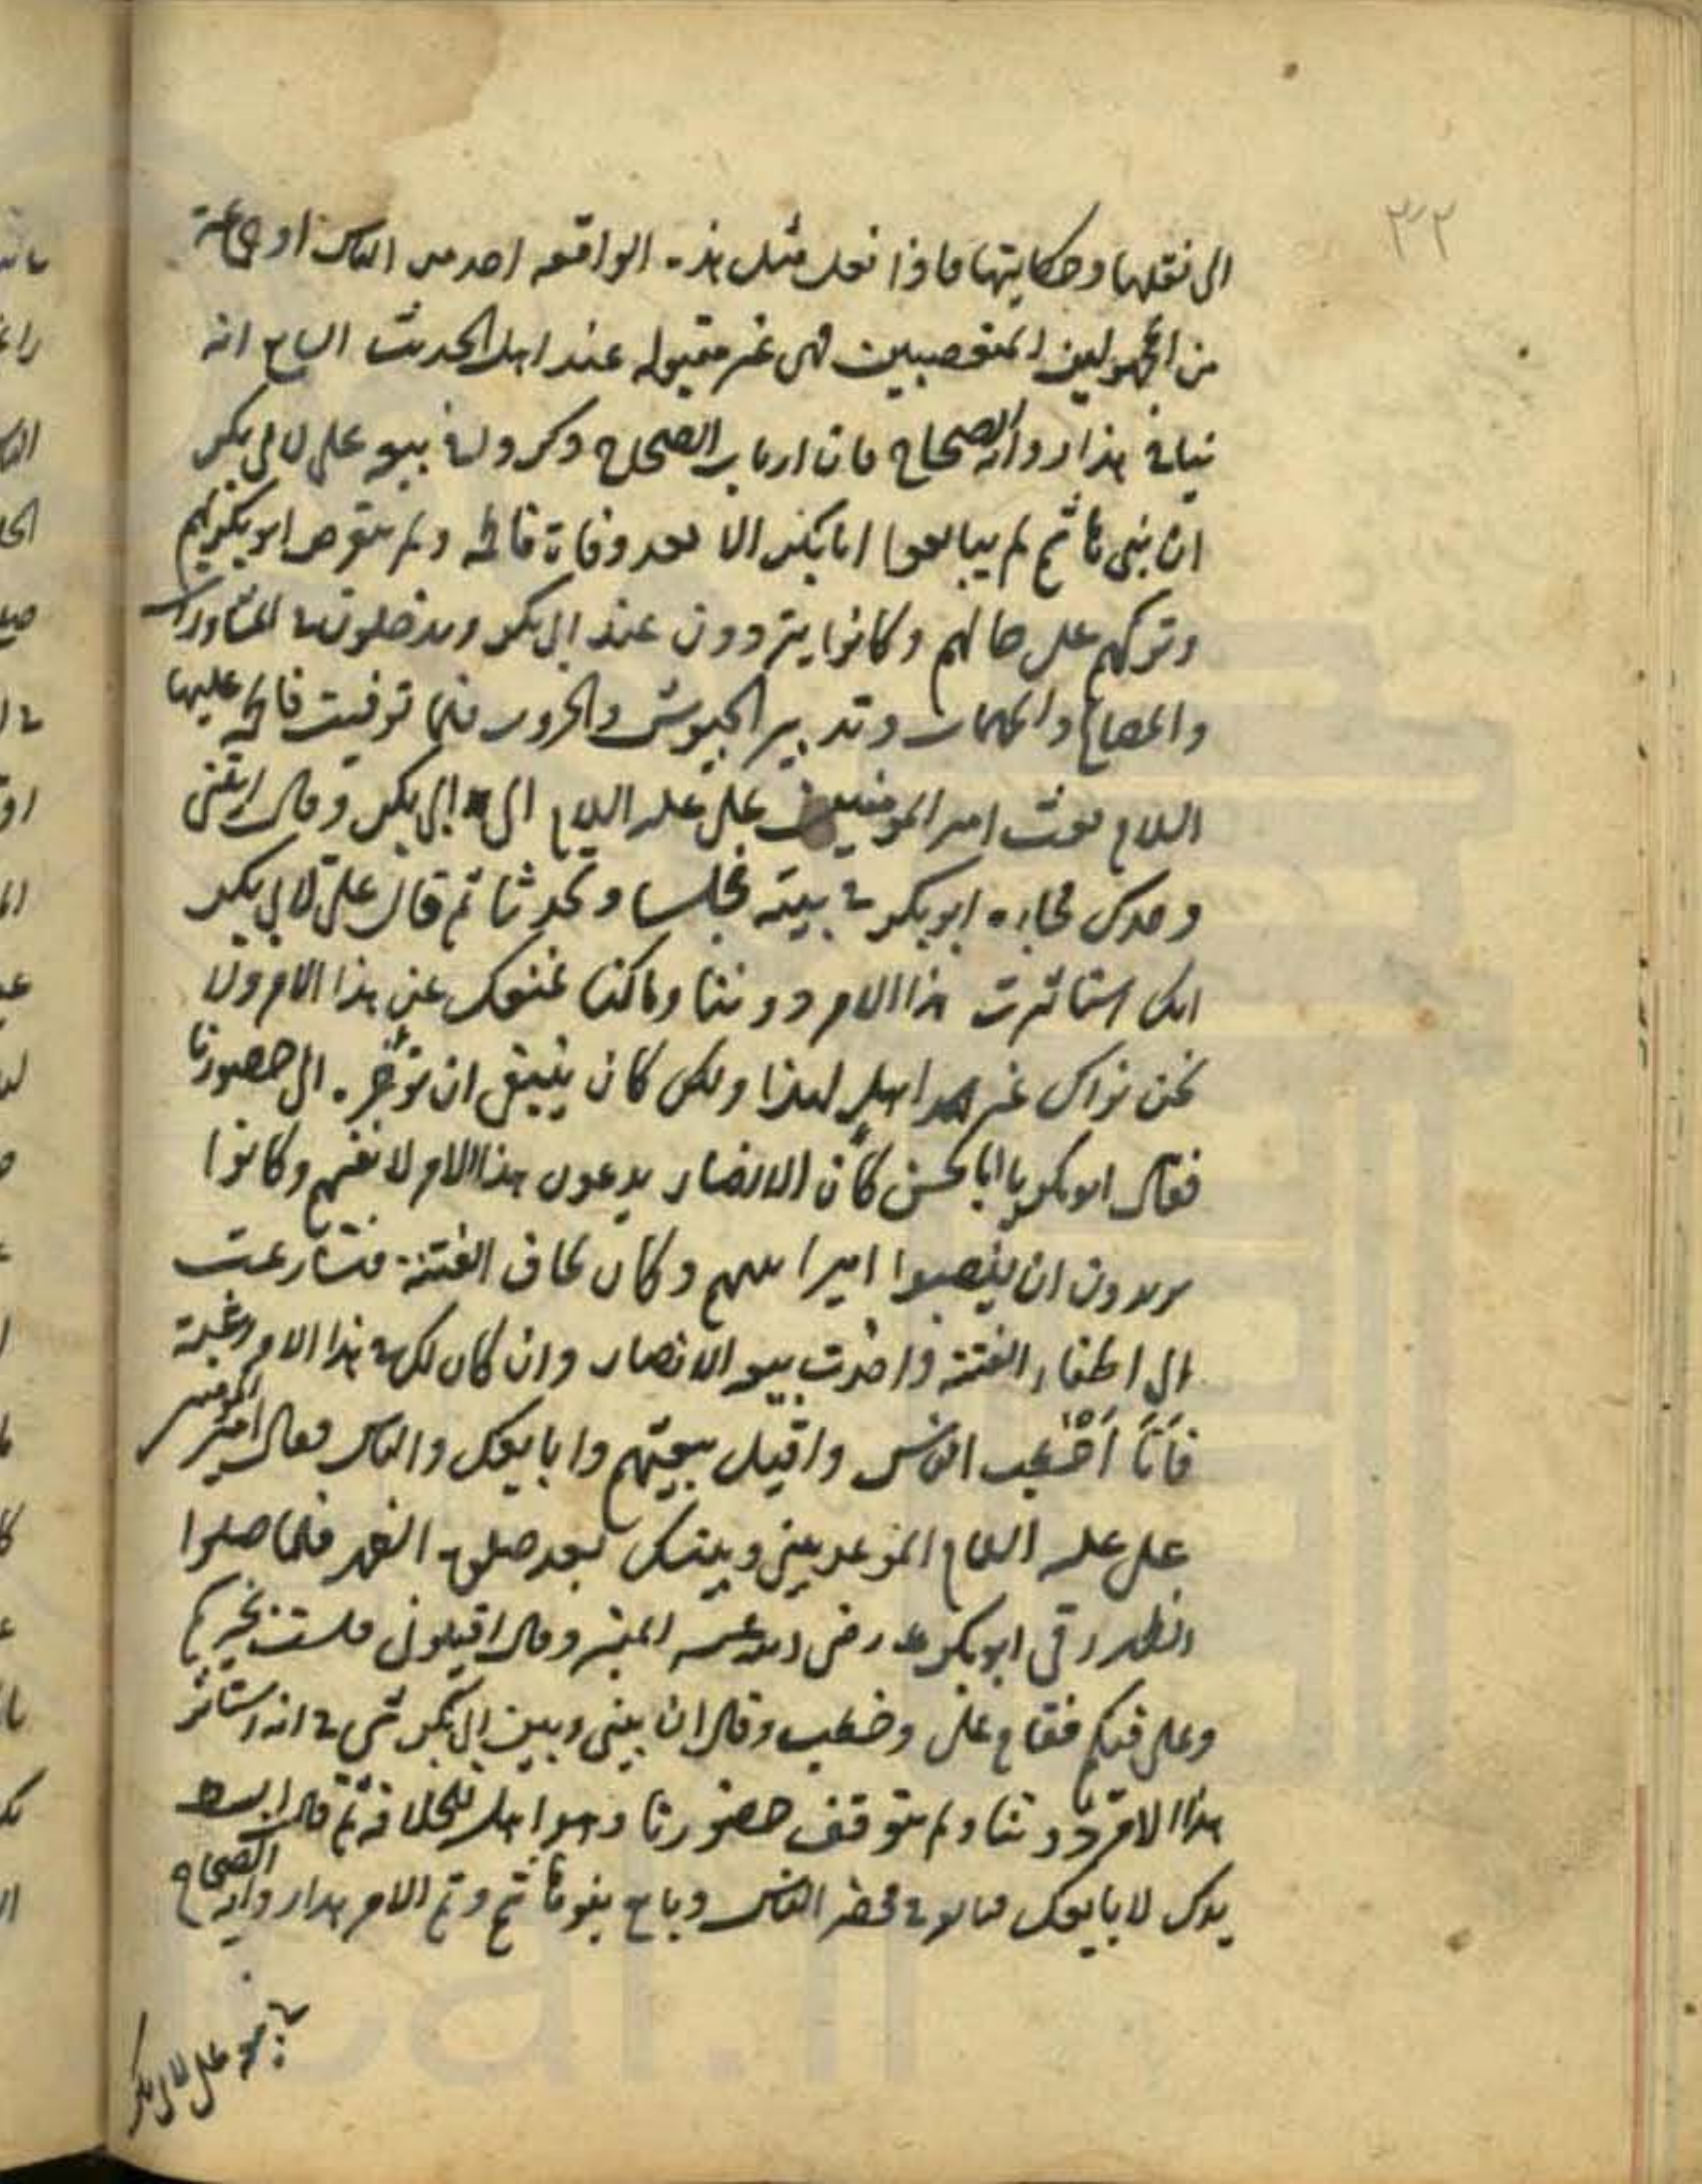 ٣٣٢
الى نقلها وحكايتها فاذا نقل مثل هذه الواقعه احد من الناس او جماعة
من المجهولين المتعصبين فهى غير مقبوله عند اهل الحديث السابع انه
ينافي هذا رواية الصحاح فان ارباب الصحاح ذكروا في بيعه على لابى بكر
ان بنى هاشم لم يبايعوا ابا بكر الا بعد وفاة فاطمه ولم يتعرض ابو بكر لهم
وتركهم على حالهم وكانوا يترددون عند ابى بكر ويدخلون في المشاورات
والمصالح والمهمات وتدبير الجيوش والحروب فلما توفيت فاطمه عليها
السلام بعث امير المومنين على عليه السلام الى ابى بكر وقال ايتنى
وحدك فجاءه ابو بكر في بيته فجلسا وتحدثا ثم قال على لابى بكر
انك استاثرت هذا الامر دوننا وما كنا نمنعك عن هذا الامر ولا
نحن نراك غير اهل لهذا ولكن كان ينبغى ان تؤخره الى حضورنا
فقال ابو بكر يا ابا الحسن كان الانصار يدعون هذا الامر لانفسهم وكانوا
يريدون ان ينصبوا اميرا منهم وكان يخاف الفتنة فتسارعت
الى اطفاء الفتنة واخذت بيعه الانصار وان كان لك في هذا الامر رغبة
فانا اخطب الناس واقيل بيعتهم وابايعك والناس فقال امير المومنين
على عليه السلام الموعد بينى وبينك بعد صلوة الظهر فلما صلوا
الظهر رقى ابو بكر رضى الله عنه المنبر وقال اقيلونى فلست بخيركم
وعلى فيكم فقام على وخطب وقال ان بينى وبين ابى بكر شى في انه استاثر
هذا الامر دوننا ولم يتوقف حضورنا وهو اهل للخلافة ثم قال ابسط
يدك لابايعك فبايعه في محضر الناس وبايع بنو هاشم وتم الامر هذا رواية الصحاح
في بيعه على لابى بكر